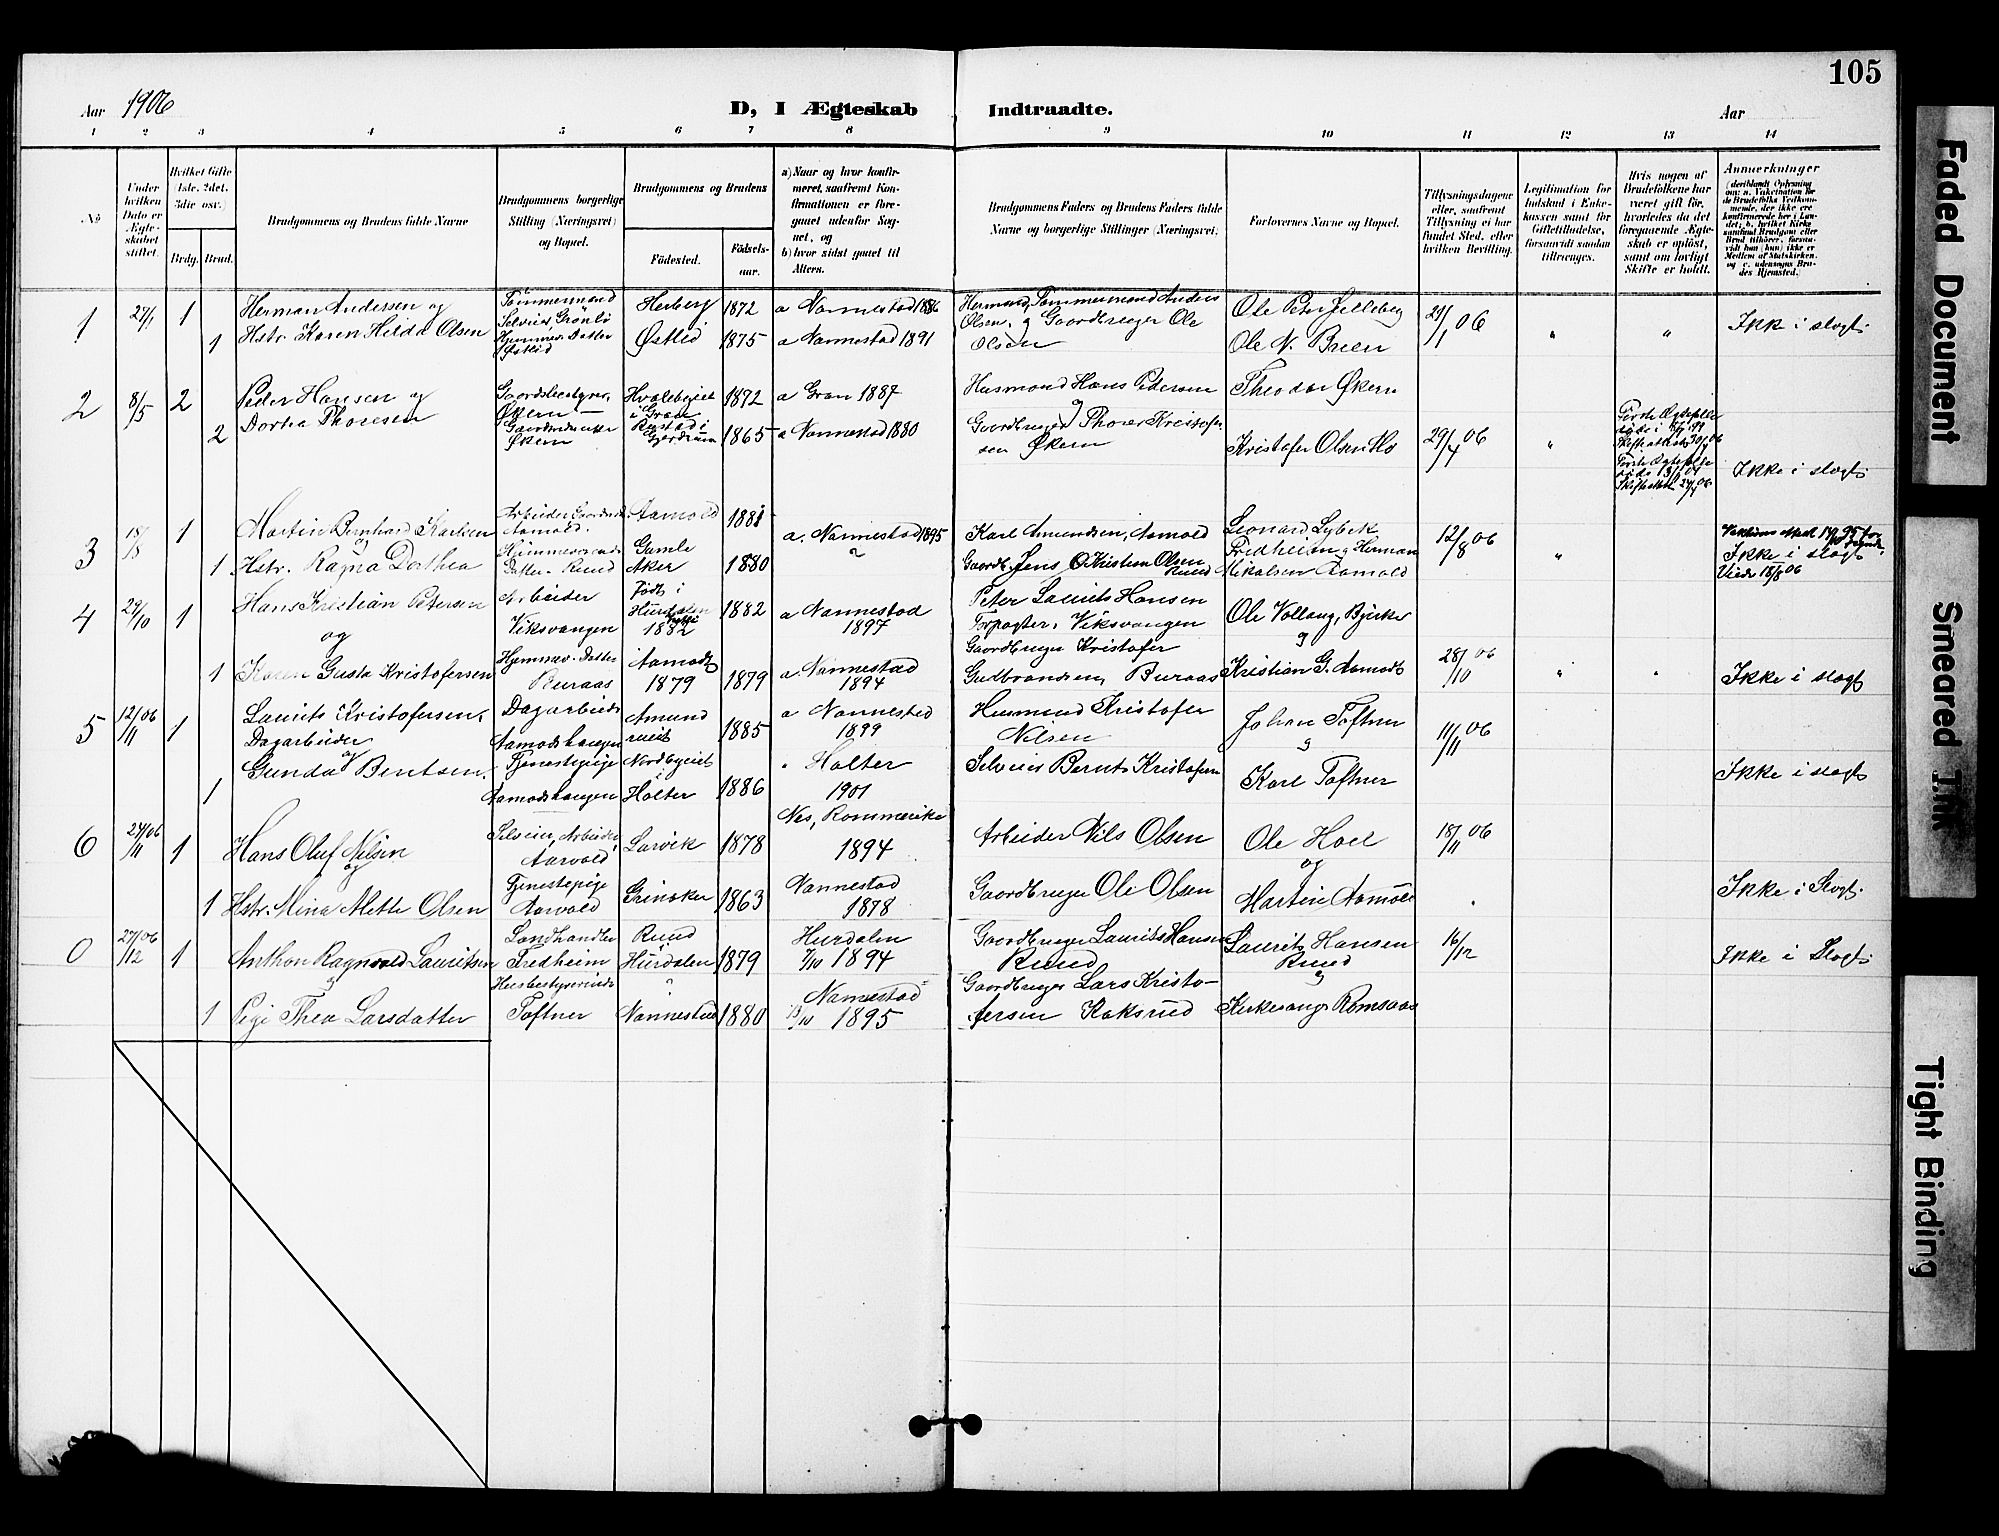 105
Aar 1906
D, I Ægteskab Indtraadte.
Aar
1 2 3 4 5 6 7 8 9 10 11 12 13 14
No
Under hvilken Dato er Ægteskabet stiftet.
Hvilket Gifte (1ste, 2det, 3die osv.)
Brdg. Brud.
Brudgommens og Brudens fulde Navne
Brudgommens borgerlige Stilling (Næringsvei) og Bopæl.
Brudgommens og Brudens
Fødested.
Fødselsaar.
a) Naar og hvor konfirmeret, saafremt Konfirmationen er foregaaet udenfor Sognet, og
b) hvor sidst gaaet til Alters.
Brudgommens Faders og Brudens Faders fulde Navne og borgerlige Stillinger (Næringsvei)
Forlovernes Navne og Bopæl.
Tillysningsdagene eller, saafremt Tillysning ei har fundet Sted, efter hvilken Bevilling.
Legitimation for Indskud i Enkekassen samt for Giftetilladelse, forsaavidt saadan tiltrænges.
Hvis nogen af Brudefolkene har været gift før, hvorledes da det foregaaende Ægteskab er opløst, samt om lovligt Skifte er holdt.
Anmærkninger
1 27/1 1 Herman Andersen og
Tømmermand Selveier, Grønli
Herberg 1872 a Nannestad 1886
Husmand, Tømmermand Anders Olsen, og Gaardbruger Ole Olsen
Ole Peter
21/1 06 " " Ikke i slægt
1 Hstr. Karen Hilda Olsen
Hjemmev. Datter Østlid
Østlid 1875 a Nannestad 1891
Ole N. Breen
2 8/5 2 Peder Hansen og
Gaardsbestyrer, Økern
Hvalebyeiet i Gran 1872 a Gran 1887
Husmand Hans Pedersen og
Theodor Økern
2 Dortea Thoresen
Økern
Rustad i Gjerdrum 1865 a Nannestad 1880
Gaardbruger Thorer Kristofersen Økern
Kristofer Olsen Mo
29/4 06 "
Ikke i slægt
3 18/8 1 Martin Bernhard Karlsen
Arbeider
Aamold 1881 a. Nannestad 1895
Karl Amundsen, Aamold
Leonard Lybek Fredheim og Herman Mikalsen Aamold
12/8 06 "
Ikke i slægt
Viede 18/8 06
1 Hstr. Ragna Dorthea
Datter. Ruud
Gamle Aker 1880
Gaardb. Jens Kristian Olsen Ruud
4 29/10 1 Hans Kristian Petersen
og
Arbeider
Viksvangen
Født i Hurdalen 1882
1882 a Nannestad 1897
Peter Laurits Hansen
Forpagter, Viksvangen
Ole Vollaug, Bjerke
og
1 Karen Gusta Kristofersen
Hjemmev. Datter
Buraas
Aamodt 1879
1879 a. Nannestad 1894
Gaardbruger Kristofer
Gudbrandsen, Buraas
Kristian G. Aamodt
28/10 06 " " Ikke i slægt
5 12/11 06 1 Laurits Kristofersen,
Dagarbeider
og
Dagarbeider
Aamodshaugen
Amundrueiet 1885 a Nannestad 1899
Husmand Kristofer Nilsen
Johan Toftner
og
11/11 06
1 Gunda Bentsen
Tjenestepige
Aamodshaugen
Nordbyeiet Holter 1886 " Holter 1901
Selveier Bernt Kristofersen
Karl Toftner
Ikke i slægt
6 24/11 06 1 Hans Oluf Nilsen
og
Selveier, Arbeider
Aarvold
Larvik 1878 Nes, Romerike 1894
Arbeider Nils Olsen
Ole Hoel
og
18/11 06
1 Hstr. Mina Mette Olsen
Tjenestepige
Aarvold
Grinaker 1863 Nannestad 1878
Gaardbruger Ole Olsen
Martin Aamold
Ikke i Slægt.
0 27/12 06 1 Anthon Ragnvald Lauritsen
og
Landhandler
Fredheim
Ruud Hurdalen 1879 Hurdalen 7/10 1894
Gaardbruger Laurits Hansen Ruud
Laurits Hansen Ruud
og
16/12 Ikke i Slægt
1 Thea Larsdatter
Husbestyrerinde
Toftner
Nannestad 1880 Nannestad 13/10 1895
Gaardbruger Lars Kristofersen Koksrud
Kirkesanger Romsaas
Faded Document
Smeared Ink
Tight Binding